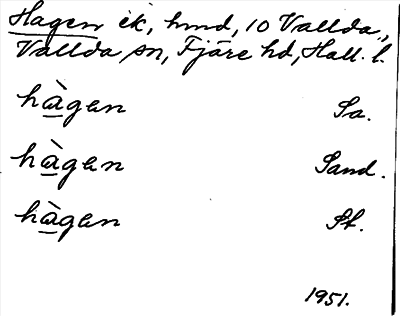 Hagen ek, hmd, 10 Vallda,
Vallda sn, Fjäre hd, Hall. l.
hà̱gen Sa.
hà̱gen Sand.
hà̱gen St.
1951.